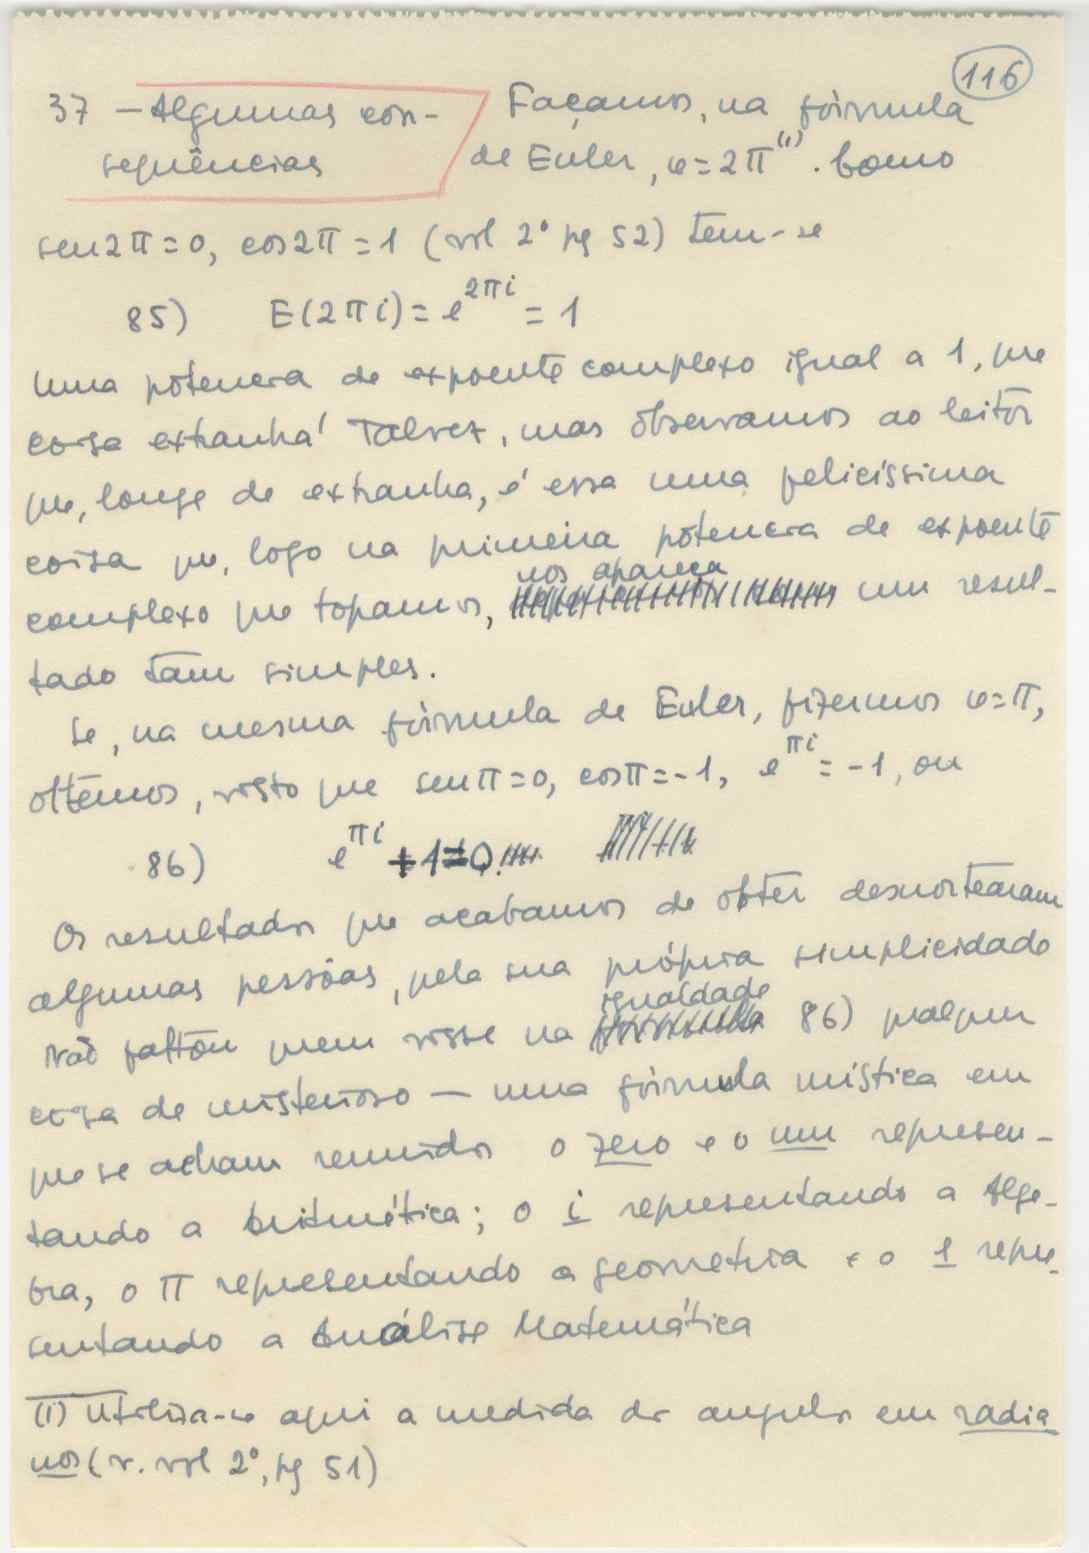 116
37 — Algumas con-
sequências
Façamos, na fórmula
de Euler, φ=2π⁽¹⁾. Como
sen2π=0, cos2π=1 (vol 2º pg 52) tem-se
85) E(2πi)=e^{2πi} = 1
Uma potência de expoente complexo igual a 1, que
coisa extranha! Talvez, mas observamos ao leitor
que, longe de extranha, é essa uma felicíssima
coisa que, logo na primeira potência de expoente
complexo que topamos, nos apareça um resul-
tado tam simples.
Se, na mesma fórmula de Euler, fizermos φ=π,
obtemos, visto que senπ=0, cosπ=-1, e^{πi}=-1, ou
86) e^{πi}+1=0.
Os resultados que acabamos de obter desnortearam
algumas pessôas, pela sua própria simplicidade
Não faltou quem visse na igualdade 86) qualquer
coisa de misterioso — uma fórmula mística em
que se acham reunidos o zero e o um represen-
tando a Aritmética; o i representando a Álge-
bra, o π representando a geometria e o 1 repre-
sentando a Análise Matemática
(1) Utiliza-se aqui a medida de angulos em radia
nos (v. vol 2º, pg 51)